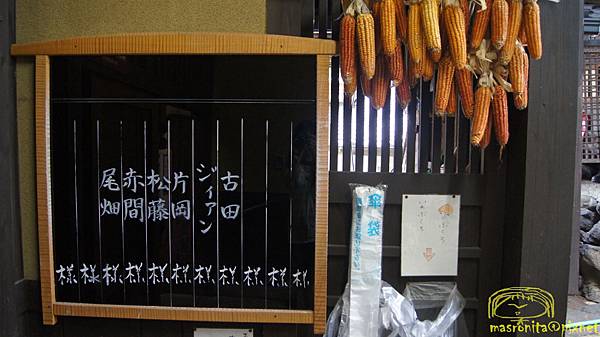 古田 様
ジィアン 様
片岡 様
松藤 様
赤間 様
尾畑 様
様
様
様
様
様
傘袋
masronita@pixnet